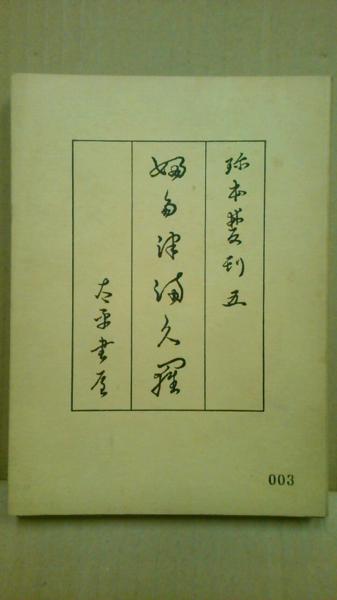 珍本雙刊五
婦多津満久羅
太平書屋
003